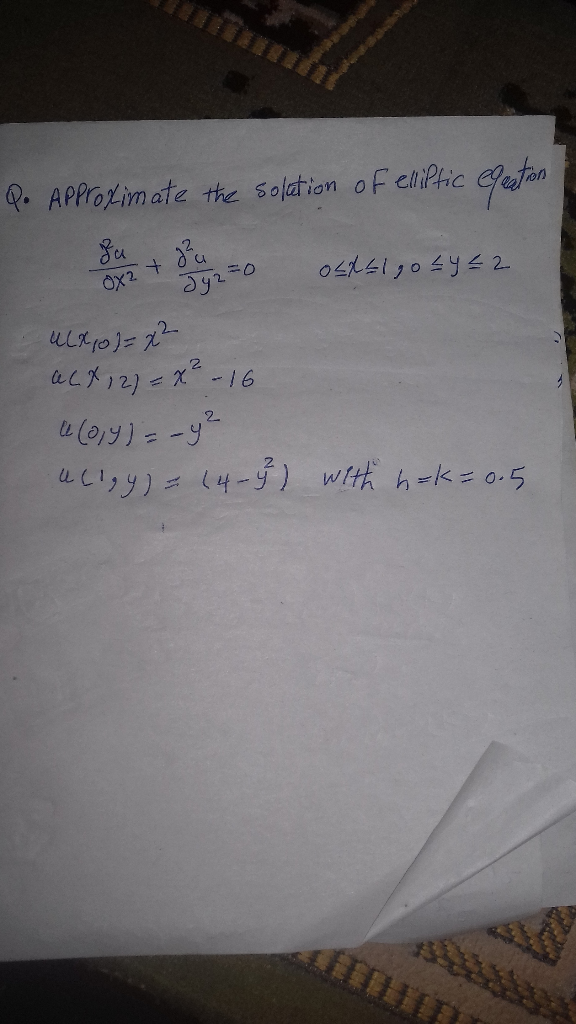 Q. Approximate the solution of elliptic equation
∂²u/∂x² + ∂²u/∂y² = 0 0≤x≤1, 0≤y≤2
u(x,0) = x²
u(x,2) = x² - 16
u(0,y) = -y²
u(1,y) = (4-y²) with h=k=0.5